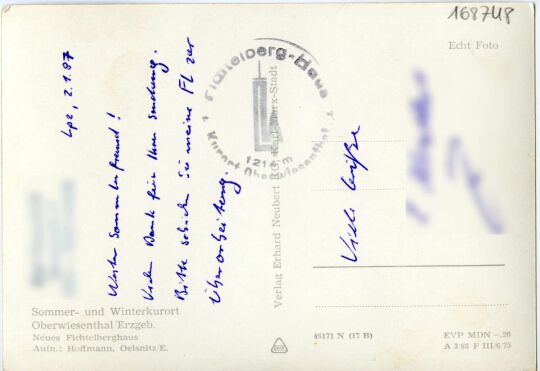 168748
Echt Foto
Lpz, 2.1.87
Werter Sammlerfreund!
Vielen Dank für Ihre Sendung.
Bitte schicken Sie meine FL zur
Überarbeitung.
Viele Grüße
Fichtelberg-Haus
1214 m
Kurort Oberwiesenthal
Verlag Erhard Neubert KG, Karl-Marx-Stadt
Sommer- und Winterkurort
Oberwiesenthal/Erzgeb.
Neues Fichtelberghaus
Aufn.: Hoffmann, Oelsnitz/E.
45171 N (17 B)
EVP MDN -.20
A 3/68 F III/6/75